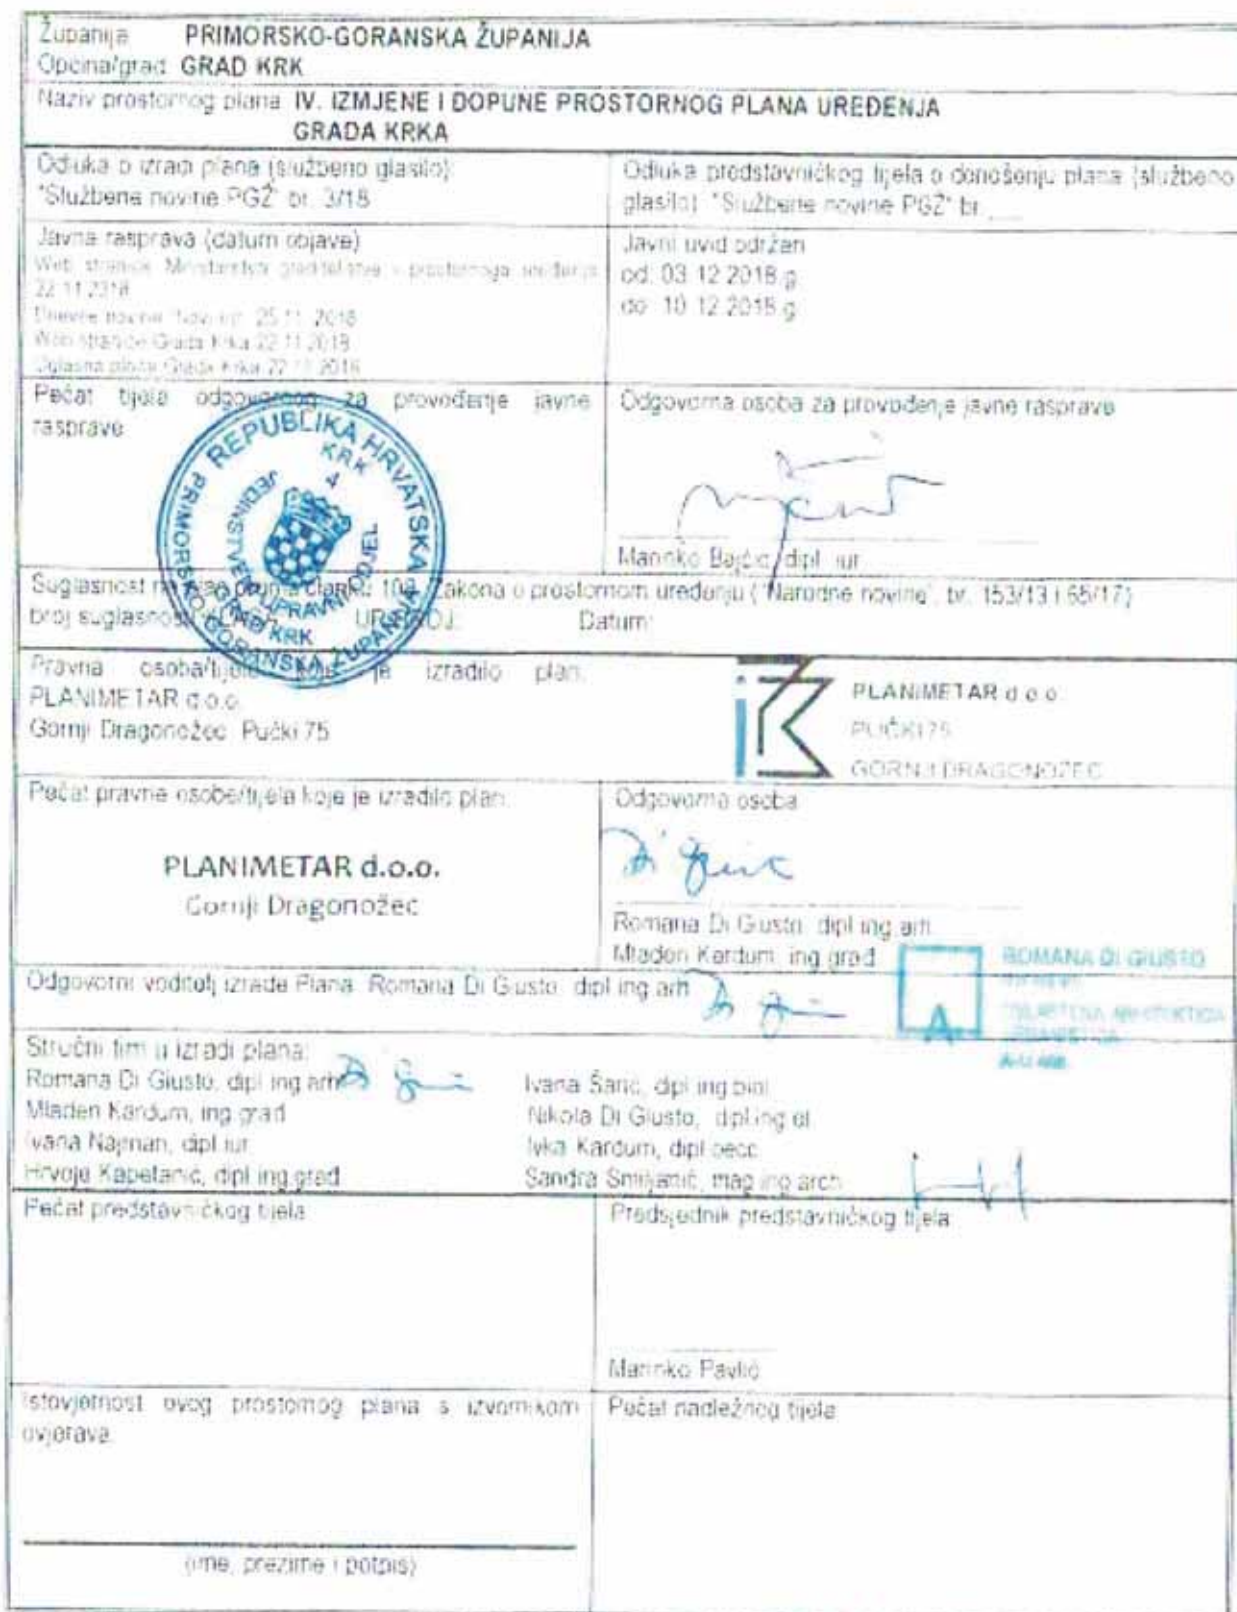 Županija PRIMORSKO-GORANSKA ŽUPANIJA
Općina/grad: GRAD KRK
Naziv prostornog plana: IV. IZMJENE I DOPUNE PROSTORNOG PLANA UREĐENJA
GRADA KRKA
Odluka o izradi plana (službeno glasilo):
"Službene novine PGŽ" br. 3/18
Odluka predstavničkog tijela o donošenju plana (službeno
glasilo): "Službene novine PGŽ" br.___
Javna rasprava (datum objave)
Web stranice Ministarstva graditeljstva i prostornoga uređenja
22.11.2018
Dnevne novine Novi list 25.11.2018
Web stranice Grada Krka 22.11.2018
Oglasna ploča Grada Krka 22.11.2018
Javni uvid održan
od: 03.12.2018.g.
do: 10.12.2018.g.
Pečat tijela odgovornog za provođenje javne
rasprave
REPUBLIKA HRVATSKA
PRIMORSKO GORANSKA ŽUPANIJA
KRK
4
JEDINSTVENI UPRAVNI ODJEL
GRAD KRK
Odgovorna osoba za provođenje javne rasprave
Marinko Bajčić, dipl. iur
Suglasnost na plan prema članku 108. Zakona o prostornom uređenju ("Narodne novine", br. 153/13 i 65/17)
broj suglasnosti KLASA: URBROJ: Datum:
Pravna osoba/tijelo koje je izradilo plan:
PLANIMETAR d.o.o.
Gornji Dragonožec, Pučki 75
PLANIMETAR d.o.o.
PUČKI 75
GORNJI DRAGONOŽEC
Pečat pravne osobe/tijela koje je izradilo plan:
PLANIMETAR d.o.o.
Gornji Dragonožec
Odgovorna osoba
Romana Di Giusto, dipl.ing.arh.
Mladen Kardum, ing.grad
Odgovorni voditelj izrade Plana: Romana Di Giusto, dipl.ing.arh
ROMANA DI GIUSTO
OVLAŠTENA ARHITEKTICA
URBANISTICA
A
Stručni tim u izradi plana:
Romana Di Giusto, dipl.ing.arh
Mladen Kardum, ing.grad
Ivana Najman, dipl.iur
Hrvoje Kapetanić, dipl.ing.građ
Ivana Šarić, dipl.ing.biol
Nikola Di Giusto, dipl.ing.el
Ivka Kardum, dipl.oecc
Sandra Smiljanić, mag.ing.arch
Pečat predstavničkog tijela
Predsjednik predstavničkog tijela
Marinko Pavlić
Istovjetnost ovog prostornog plana s izvornikom
ovjerava:
Pečat nadležnog tijela
(ime, prezime i potpis)